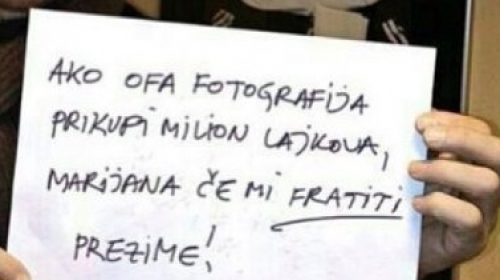 AKO OFA FOTOGRAFIJA
PRIKUPI MILION LAJKOVA,
MARIJANA ČE MI FRATITI
PREZIME!